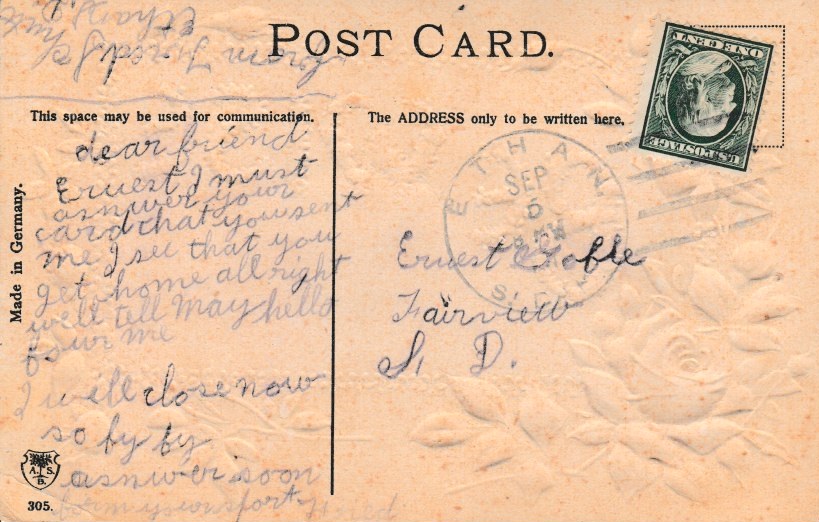 POST CARD.
This space may be used for communication.
The ADDRESS only to be written here.
Made in Germany.
dear friend
Ernest I must
asnwer your
card that you sent
me I see that you
get home all right
well tell May hello
four me
I will close now
so by by
asnwer soon
ETHAN
SEP
5
S. D.
Ernest
Fairview
S. D.
ONE CENT
U.S. POSTAGE
A. S.
B.
305.